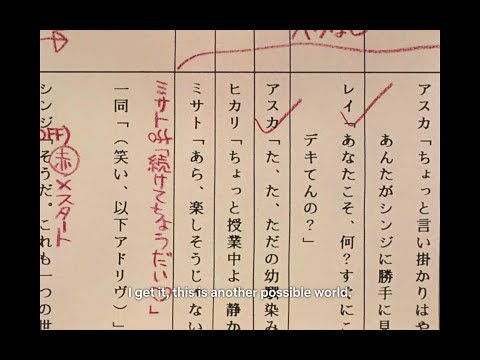 アスカ「ちょっと言い掛かりはや
あんたがシンジに勝手に見
レイ「あなたこそ、何?すぐにこ
デキてんの?」
アスカ「た、た、ただの幼馴染み
ヒカリ「ちょっと授業中よ、静か
ミサト「あら、楽しそうじゃない
ミサトoff「続けてちょうだい」
一同「(笑い、以下アドリヴ)」
シンジ「そうだ。これも一つの世
OFF)
赤×スタート
I get it, this is another possible world,